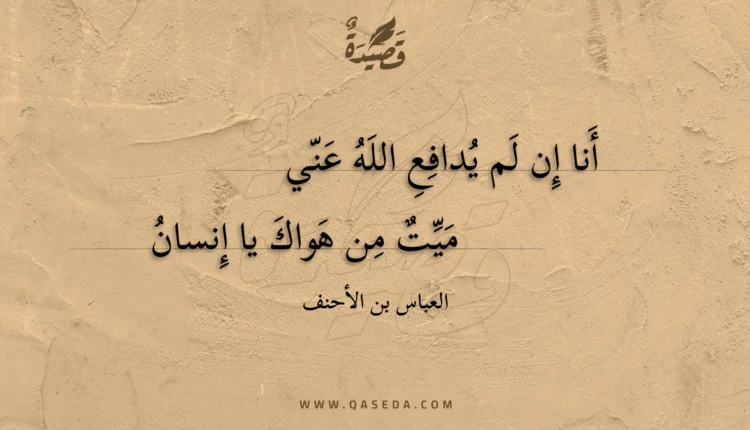 قَصِيْدَةٌ
أَنا إِن لَم يُدافِعِ اللَهُ عَنّي
مَيِّتٌ مِن هَواكَ يا إِنسانُ
العباس بن الأحنف
WWW.QASEDA.COM